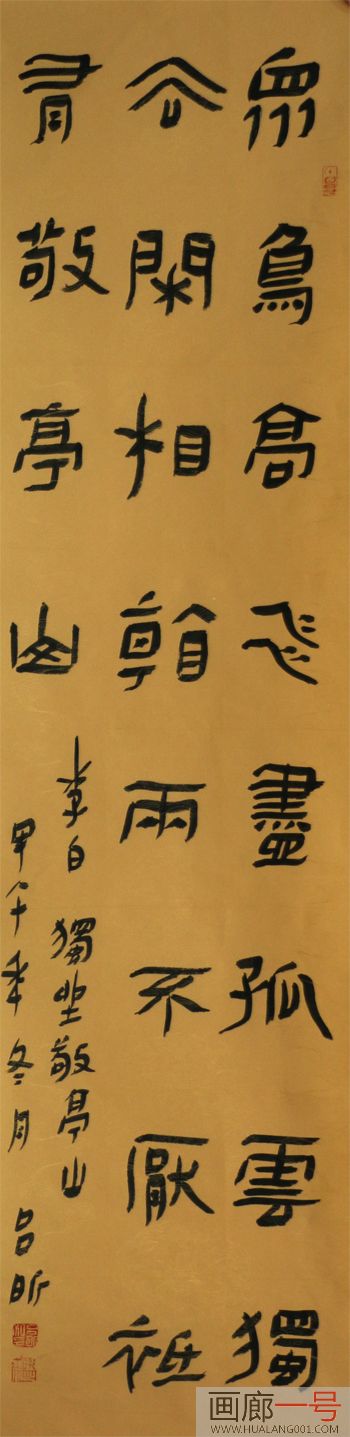 眾鳥高飛盡孤雲獨
去閑相看兩不厭祗
有敬亭山
李白 獨坐敬亭山
甲午年冬月 吕昕
画廊一号
WWW.HUALANG001.COM